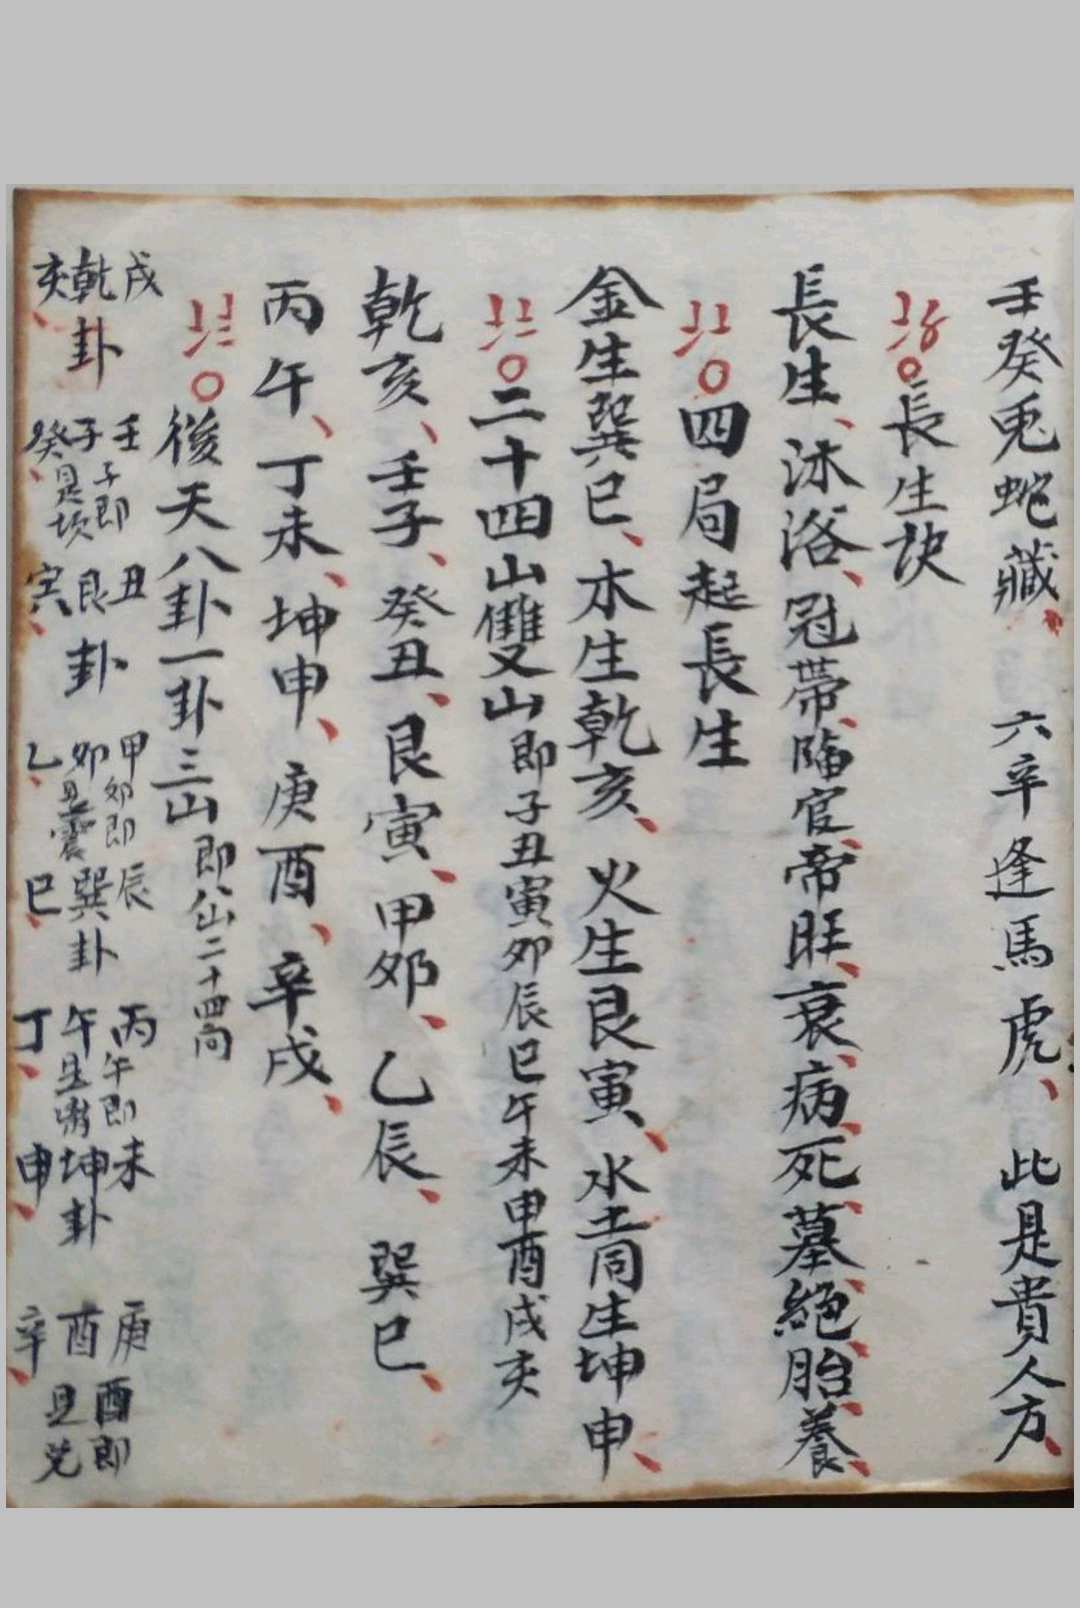 壬癸兎蛇藏、六辛逢馬虎、此是貴人方、
○長生訣
長生、沐浴、冠帶、臨官、帝旺、衰、病、死、墓、絕、胎、養、
○四局起長生
金生巽巳、木生乾亥、火生艮寅、水土同生坤申、
○二十四山雙山即子丑寅卯辰巳午未申酉戌亥
乾亥、壬子、癸丑、艮寅、甲卯、乙辰、巽巳、
丙午、丁未、坤申、庚酉、辛戌、
○後天八卦一卦三山即公山二十四向
戌乾亥、卦
壬子癸、子即是坎
丑艮寅、卦
甲卯乙、卯即是震
辰巽巳、卦
丙午丁、午即是離
未坤申、卦
庚酉辛、酉即是兌